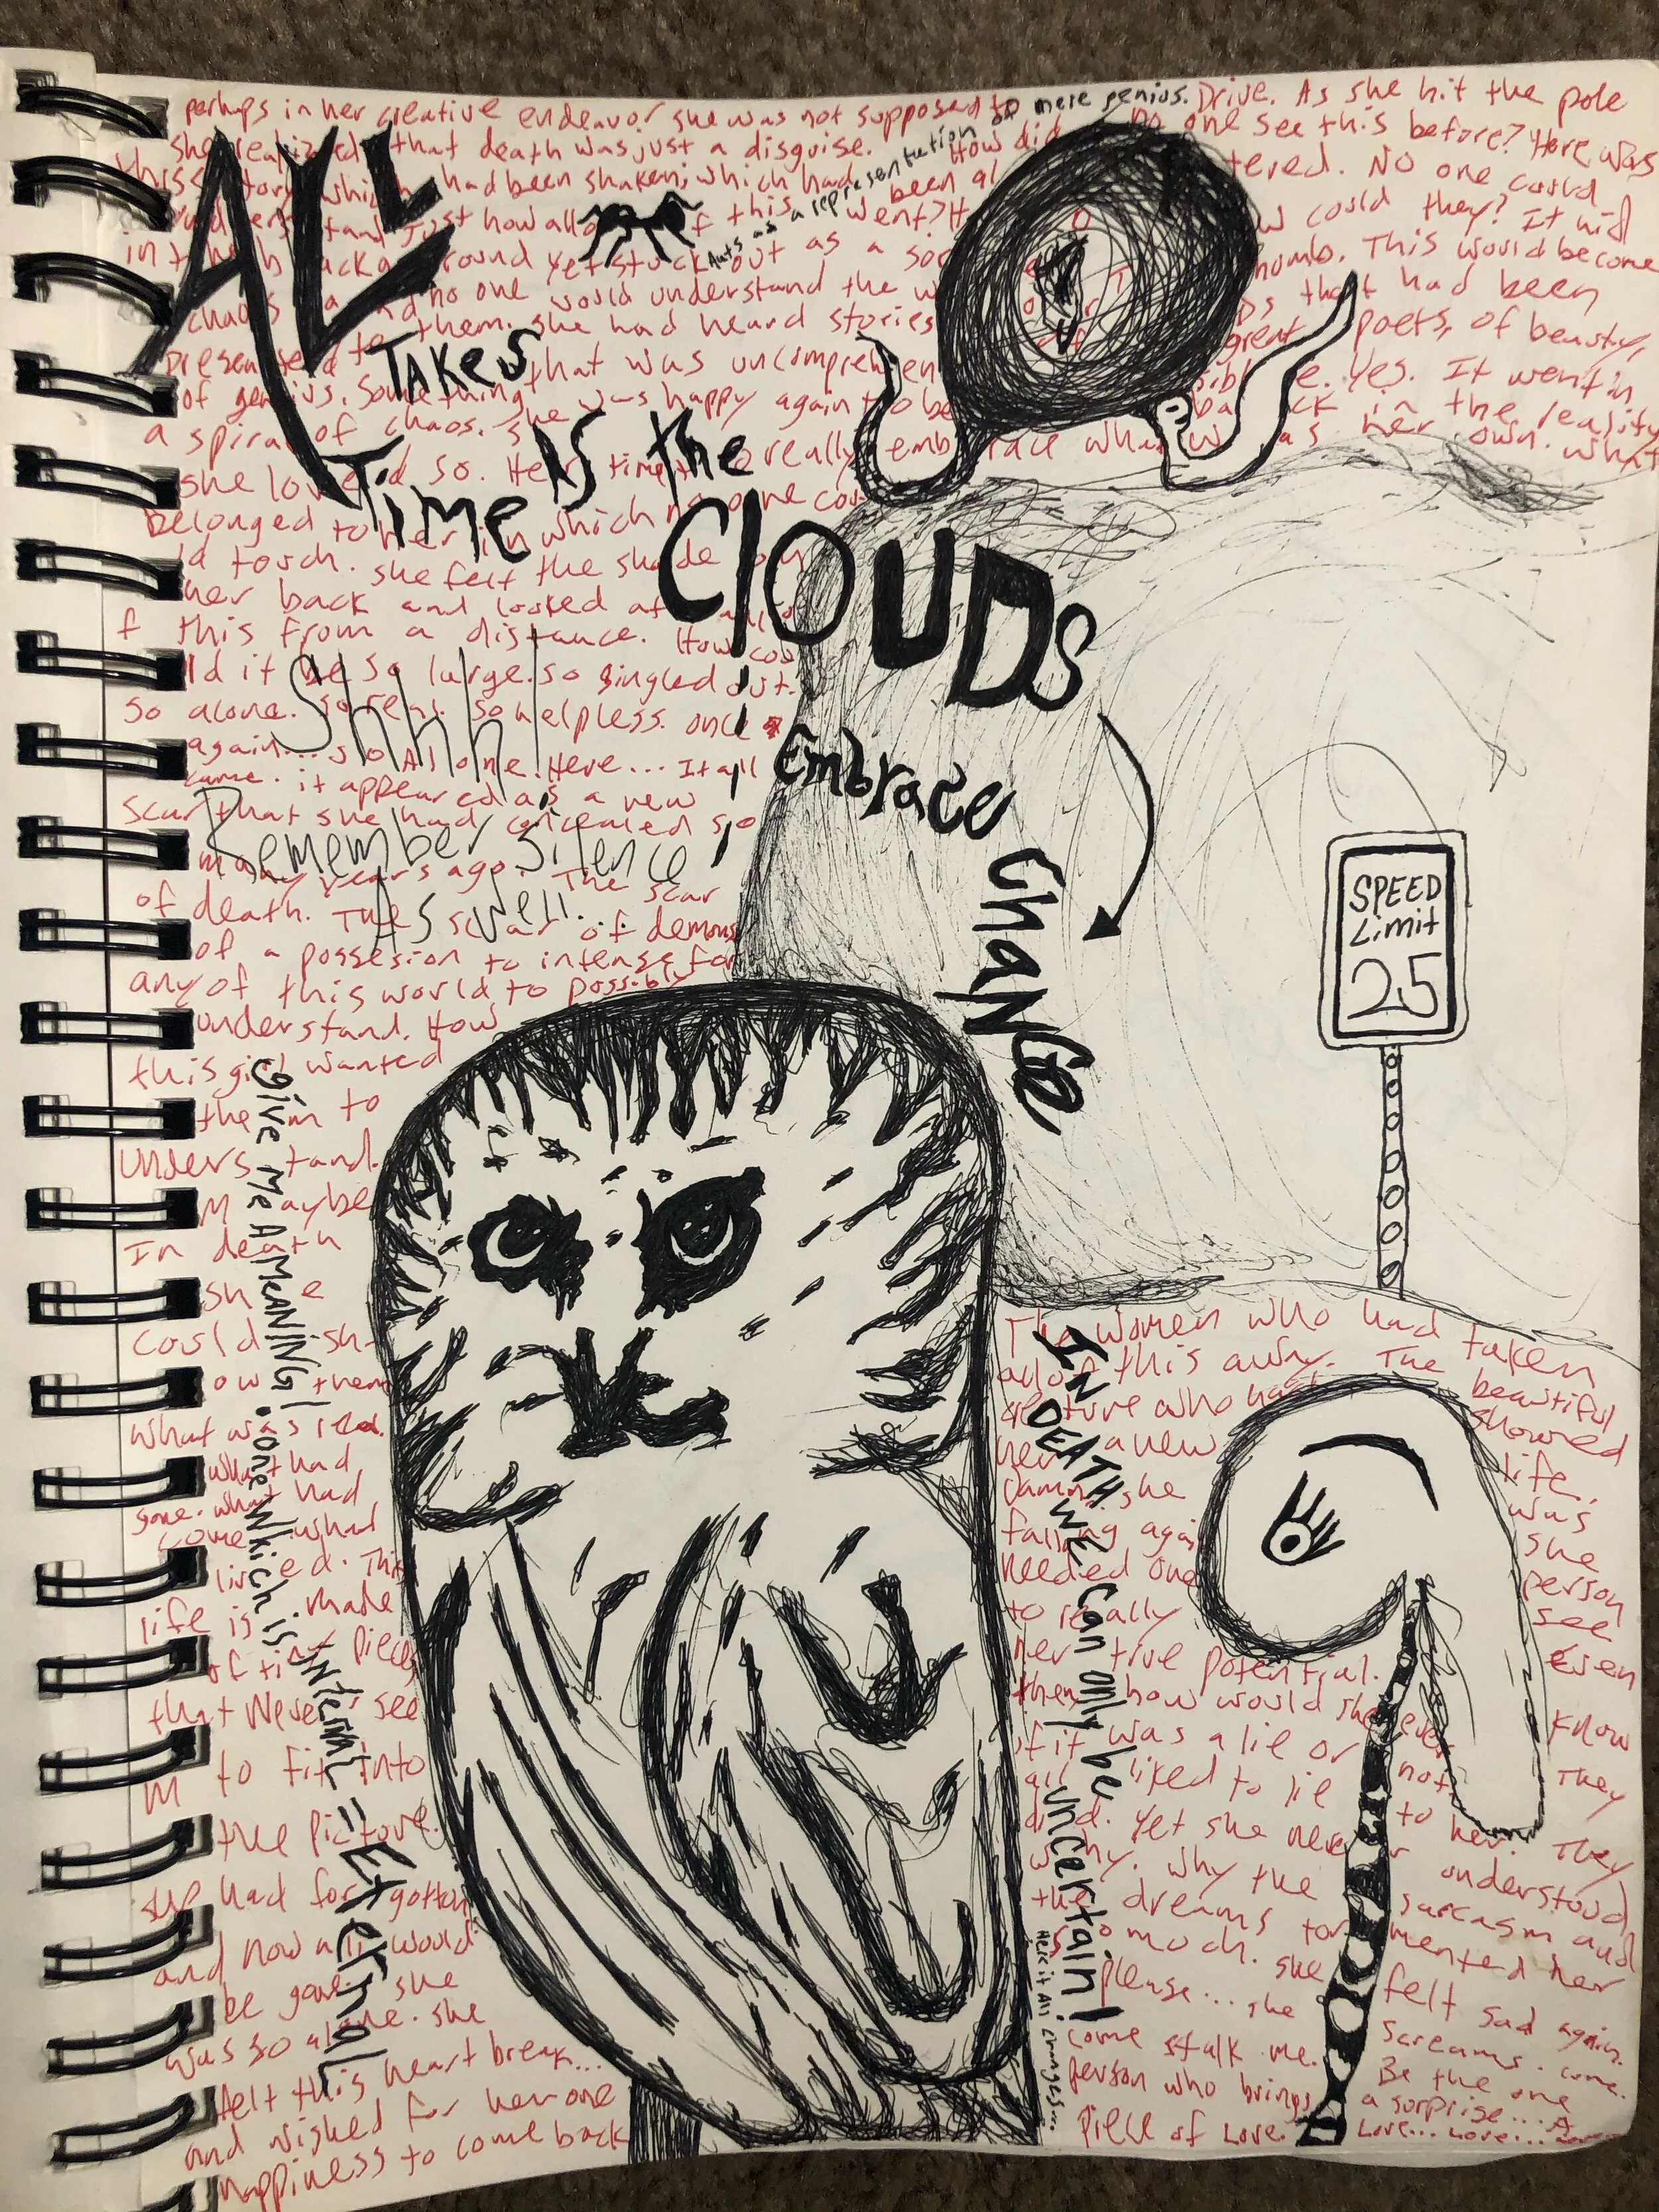 perhaps in her creative endeavor she was not supposed to Drive. As she hit the pole
she realized that death was just a disguise. How did no one see this before? Here was
this story which had been shaken, which had been tered. No one could
understand just how all of this went? could they? It hid
in the background yet stuck out as a sor thumb. This would become
chaos and no one would understand the that had been
presented to them. she had heard stories great poets, of beauty,
of genius. Something that was uncomprehensible. Yes. It went in
a spiral of chaos. She was happy again to be back in the reality
she loved so. Her time to really embrace what was her own. What
Belonged to her in which no one cou
ld torch. she felt the shade on
her back and looked at all o
f this from a distance. How cou
ld it be so large. so singled out.
so alone. so real. so helpless. once
again... so Alone. Here... It all
came. it appeared as a new
scar that she had concealed so
many years ago. The scar
of death. The scar of demons
of a possesion to intense for
any of this world to possibly
understand. How
this girl wanted
them to
understand.
Maybe
In death
she
could sh-
ow them
what was real.
what had
gone. what had
come. what
lived. This
life is made
of tiny pieces
that Never see
m to fit into
the picture.
had forgotton
and now all would
be gone. she
was so alone. she
felt this heart break...
and wished for her one
happiness to come back
Ants as a representation of mere genius.
ALL
TAKES
Time IS the
ClOUDS
Embrace Change
Shhh!
Remember Silence
As well...
SPEED
Limit
25
give me A MEANING! one Which is INternal = Eternal
IN DEATH WE Can only be uncertain!
Here it All Changes...
The women who had taken
all of this away. The beautiful
creature who had showed
her a new life.
Damn. she was
falling again she
needed one person
to really see
her true potential. Even
then how would she ever know
if it was a lie or not. They
all liked to lie to her. They
did. Yet she never understood
why. Why the sarcasm and
the dreams tormented her
so much. she felt sad again.
please... she screams. come.
come stalk me. Be the one
person who brings a surprise.... A
piece of Love. Love... Love...